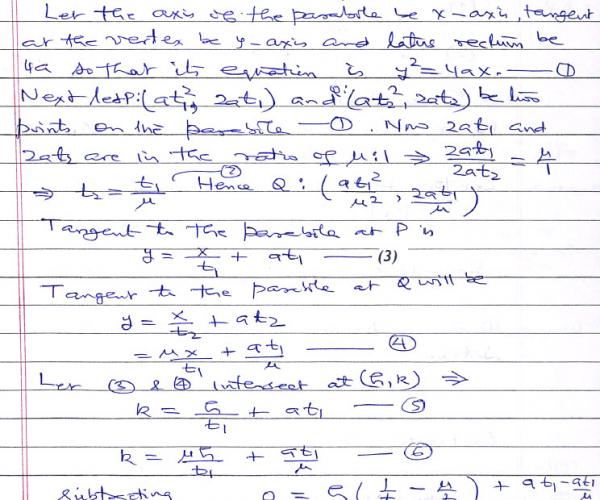 Let the axis of the parabola be x-axis, tangent
at the vertex be y-axis and latus rectum be
4a so that its equation is y² = 4ax. — ①
Next let P: (at₁², 2at₁) and Q: (at₂², 2at₂) be two
points on the parabola — ①. Now 2at₁ and
2at₂ are in the ratio of μ:1 ⇒ 2at₁/2at₂ = μ/1
⇒ t₂ = t₁/μ — ② Hence Q: (at₁²/μ², 2at₁/μ)
Tangent to the parabola at P is
y = x/t₁ + at₁ — (3)
Tangent to the parabola at Q will be
y = x/t₂ + at₂
= μx/t₁ + at₁/μ — ④
Let ③ & ④ intersect at (h, k) ⇒
k = h/t₁ + at₁ — ⑤
k = μh/t₁ + at₁/μ — ⑥
Subtracting 0 = h(1/t₁ - μ/t₁) + at₁ - at₁/μ